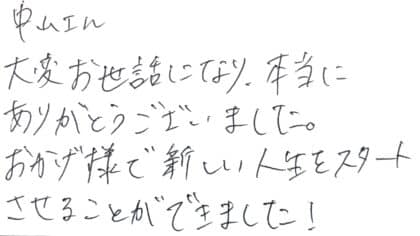 中山さん
大変お世話になり、本当に
ありがとうございました。
おかげ様で新しい人生をスタート
させることができました!